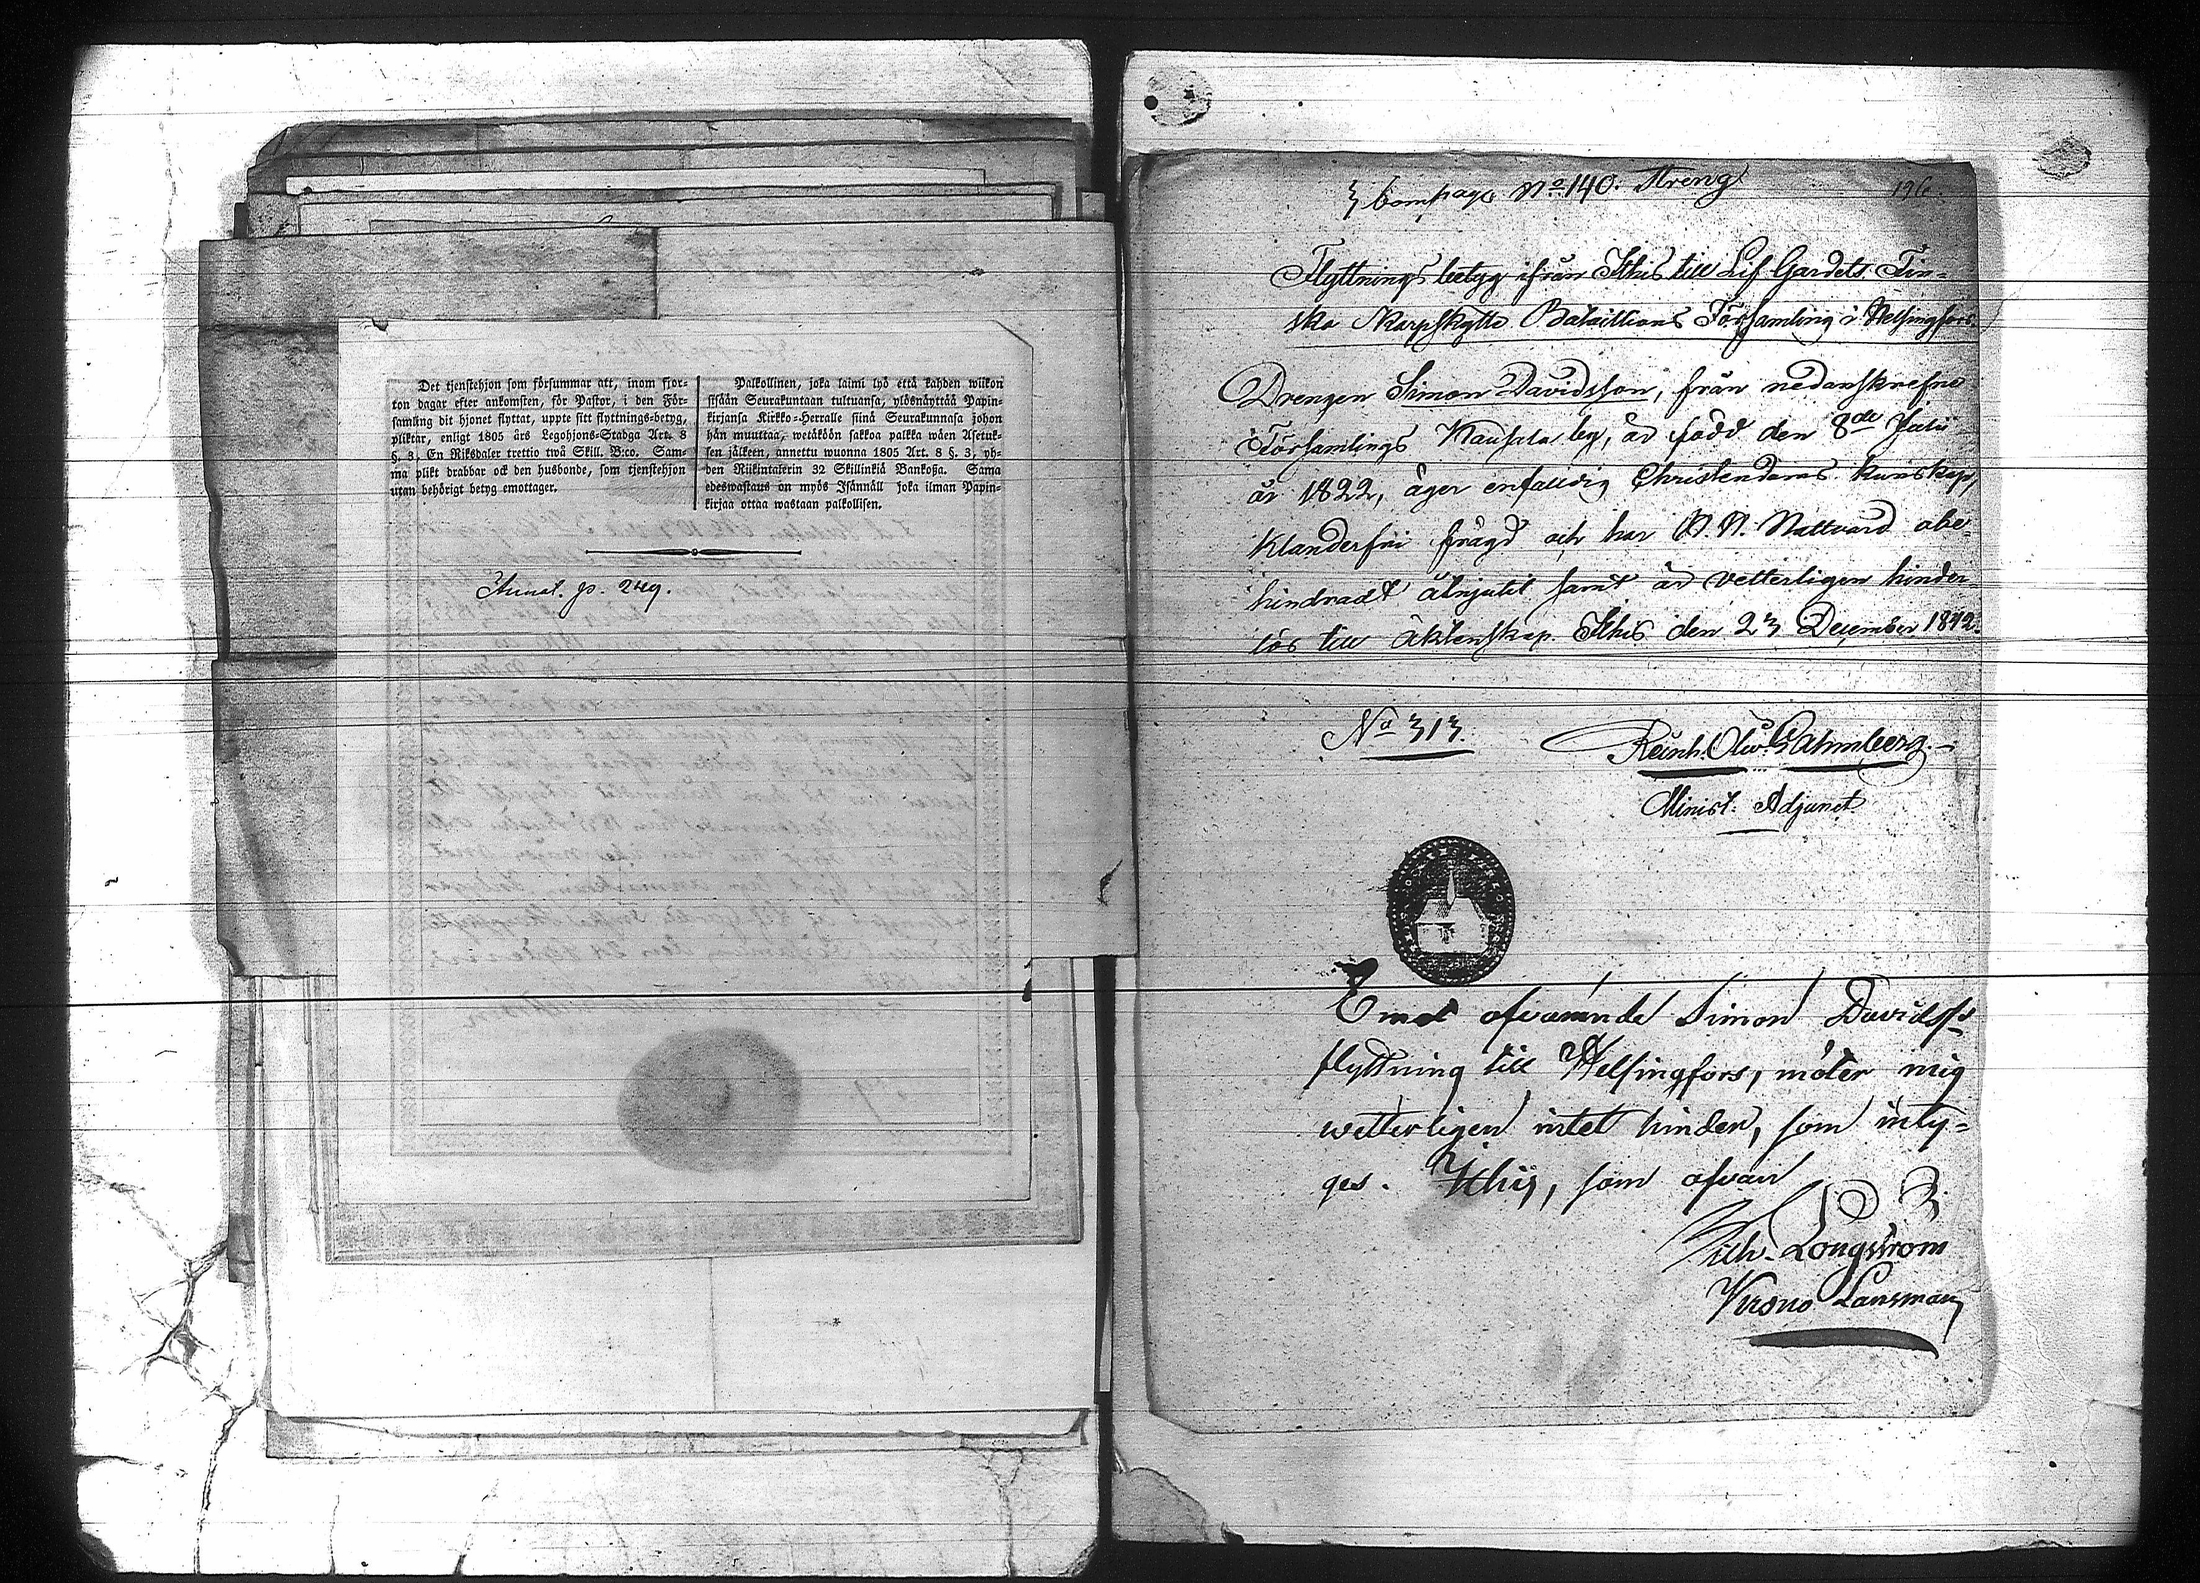 Det tjenstehjon som försummar att, inom fjor-
ton dagar efter ankomsten, för Pastor, i den För-
samling dit hjonet flyttat, uppte sitt flyttnings-betyg,
pliktar, enligt 1805 års Legohjons-Stadga Art. 8
§. 3, En Riksdaler trettio twå Skill. B:co. Sam-
ma plikt drabbar ock den husbonde, som tjenstehjon
utan behörigt betyg emottager.
Palkollinen, joka laimi lyö että kahden wiikon
sisään Seurakuntaan tultuansa, ylösnäyttää Papin-
kirjansa Kirkko-Herralle siinä Seurakunnasa johon
hän muuttaa, wetäköön sakkoa palkka wäen Asetuk-
sen jälkeen, annettu wuonna 1805 Art. 8 §. 3, yh-
den Riikintalerin 32 Skillinkiä Bankoßa. Sama
edeswastaus on myös Isännäll joka ilman Papin-
kirjaa ottaa wastaan palkollisen.
Annot. p. 249.
3 Compagn No 140. Streng
196.
Flyttnings betyg ifrån Ithis till Lif Gardets Fin-
ska Skarpskytte Bataillions Församling i Helsingfors.
Drengen Simon Davidsson, från nedanskrefne
Församlings Kausala by, är född den 8de Julii
år 1822, äger enfaldig Christendoms kunskap,
klanderfri frägd och har H. H. Nattvard obe-
hindradt åtnjutit samt är vetterligen hinder-
lös till äktenskap. Ithis den 23 December 1842.
No 313.
Reinh. Olw. Gahmberg.
Minist. Adjunct
Emot ofvannämnde Simon Davidss:s
flyttning till Helsingfors, möter mig
wetterligen intet hinder, som inty-
ges. Ithis, som ofvan
Wilh. Longström
Krono Länsman